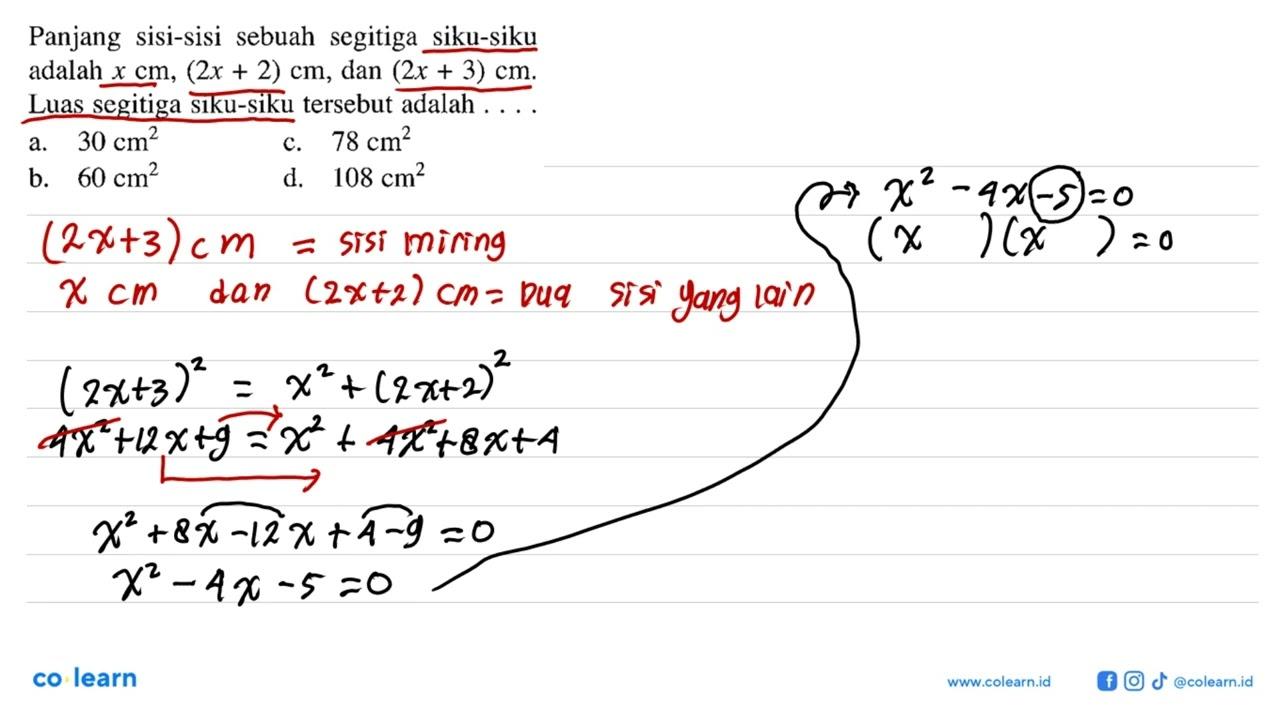 Panjang sisi-sisi sebuah segitiga siku-siku
adalah x cm, (2x + 2) cm, dan (2x + 3) cm.
Luas segitiga siku-siku tersebut adalah . . . .
a. 30 cm² c. 78 cm²
b. 60 cm² d. 108 cm²
(2x+3) cm = sisi miring
x cm dan (2x+2) cm = dua sisi yang lain
(2x+3)² = x² + (2x+2)²
4x² + 12x + 9 = x² + 4x² + 8x + 4
x² + 8x - 12x + 4 - 9 = 0
x² - 4x - 5 = 0
x² - 4x - 5 = 0
(x )(x ) = 0
co learn
www.colearn.id
@colearn.id